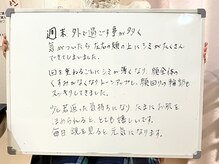 週末、外で過ごす事が多く
気がついたら左右の頬の上にシミがたくさん
できていました。
回を重ねるごとにシミが薄くなり、顔全体の
くすみがなくなりトーンアップし、顔回りの輪郭も
スッキリしてきました。
少し若返った気持ちになり、たまにお肌を
ほめられると、とても嬉しいです。
毎日鏡を見ると元気になります。